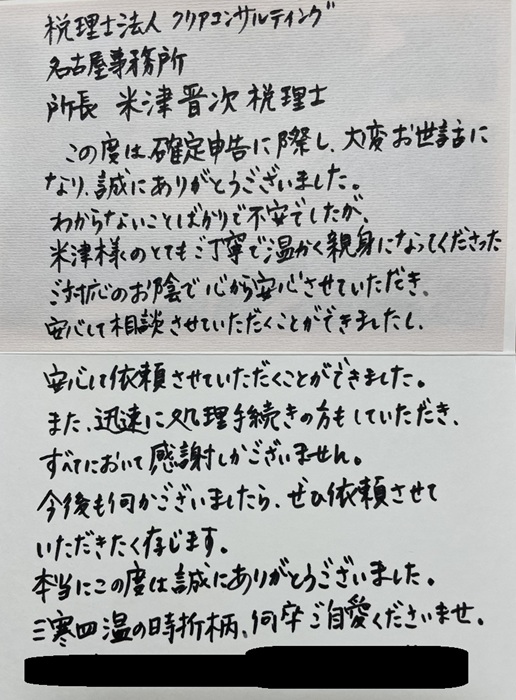 税理士法人 クリアコンサルティング
名古屋事務所
所長 米津晋次 税理士
この度は、確定申告に際し、大変お世話に
なり、誠にありがとうございました。
わからないことばかりで不安でしたが、
米津様のとてもご丁寧で温かく親身になってくださった
ご対応のお陰で心から安心させていただき、
安心して相談させていただくことができましたし、
安心して依頼させていただくことができました。
また、迅速に処理手続きの方もしていただき、
すべてにおいて感謝しかございません。
今後も何かございましたら、ぜひ依頼させて
いただきたく存じます。
本当にこの度は誠にありがとうございました。
三寒四温の時折柄、何卒ご自愛くださいませ。